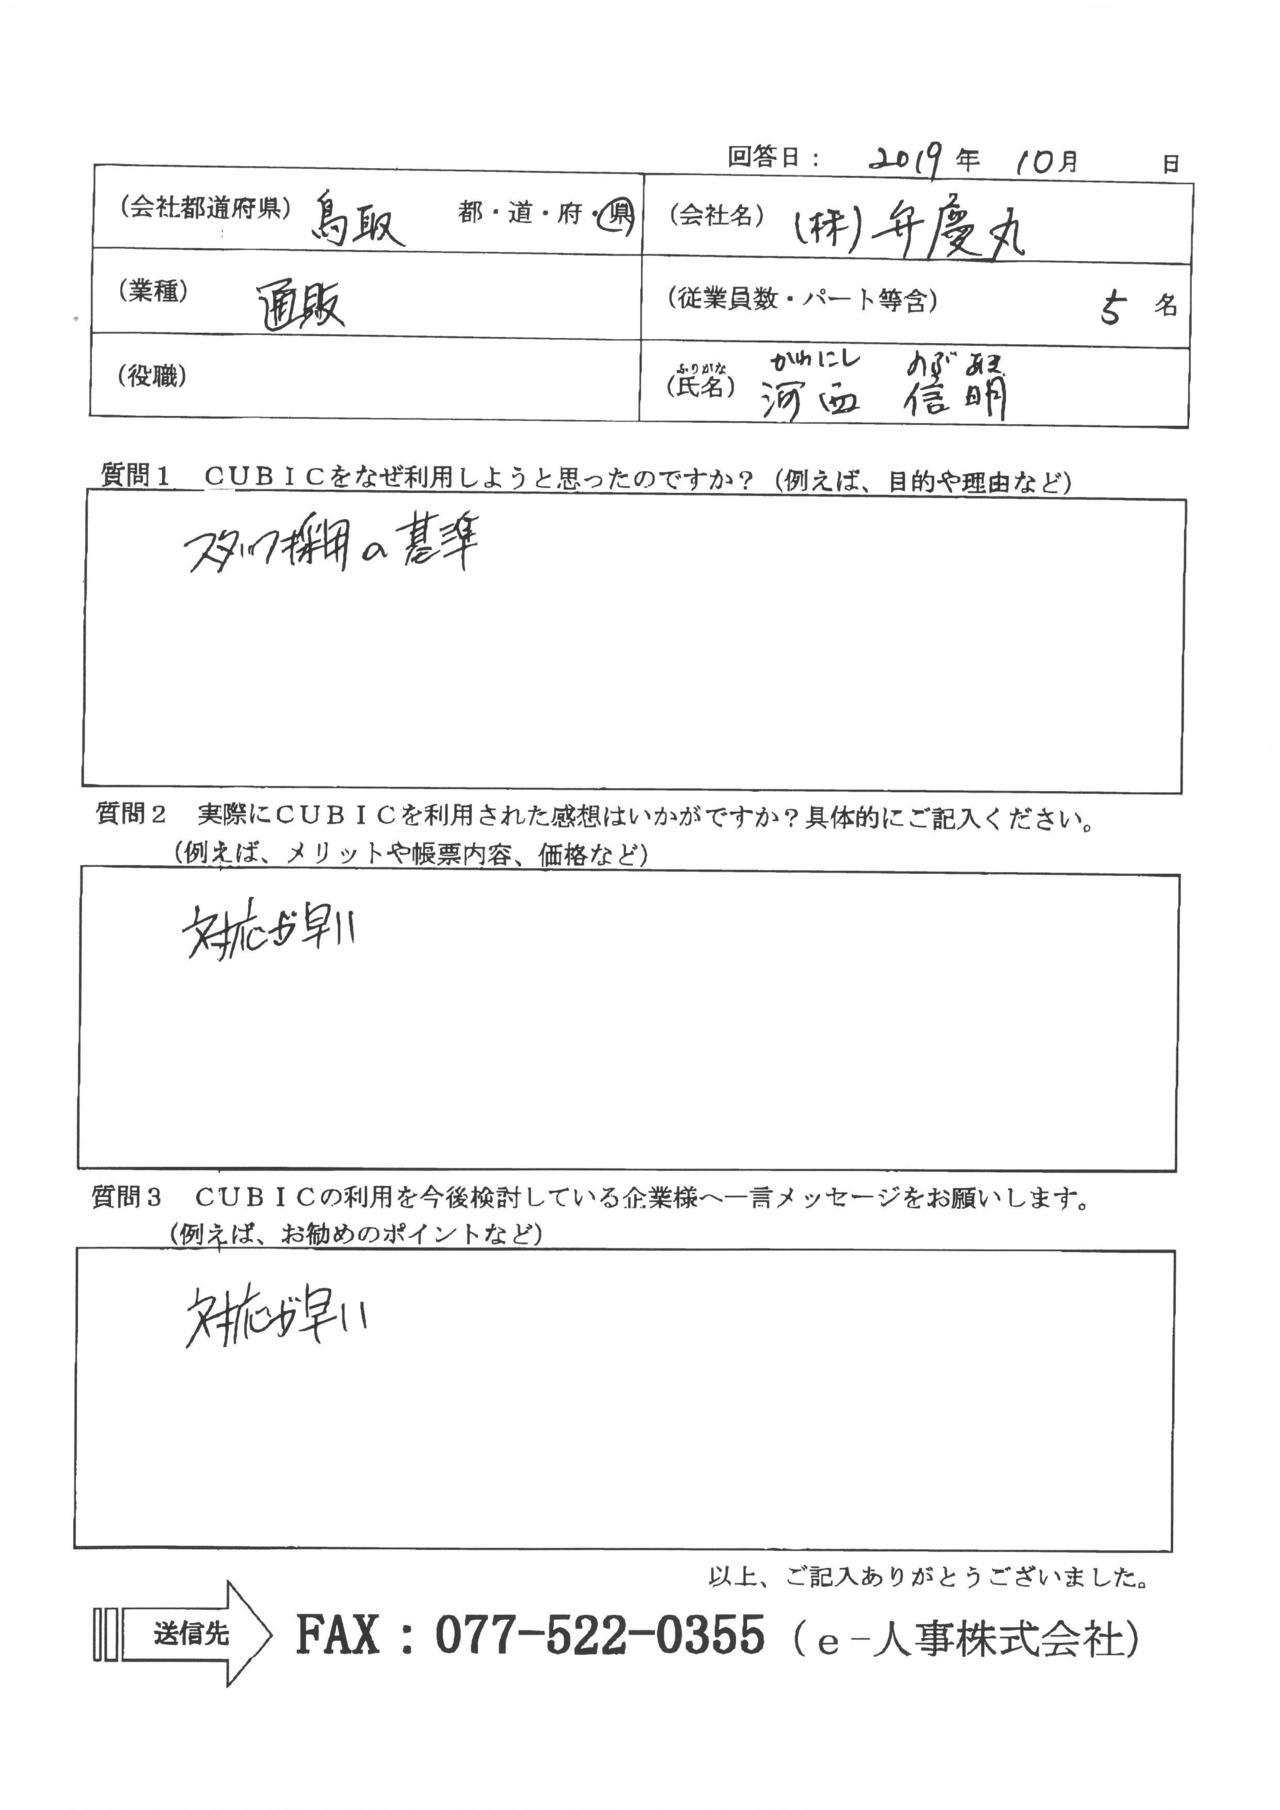 回答日： 2019年 10月 日
（会社都道府県） 鳥取 都・道・府・県 （会社名） (株)弁慶丸
（業種） 通販 （従業員数・パート等含） 5 名
ふりがな かわにし のぶあき
（役職） （氏名） 河西 信明
質問１ ＣＵＢＩＣをなぜ利用しようと思ったのですか？（例えば、目的や理由など）
スタッフ採用の基準
質問２ 実際にＣＵＢＩＣを利用された感想はいかがですか？具体的にご記入ください。
（例えば、メリットや帳票内容、価格など）
対応が早い
質問３ ＣＵＢＩＣの利用を今後検討している企業様へ一言メッセージをお願いします。
（例えば、お勧めのポイントなど）
対応が早い
以上、ご記入ありがとうございました。
送信先 FAX：077-522-0355（ｅ-人事株式会社）